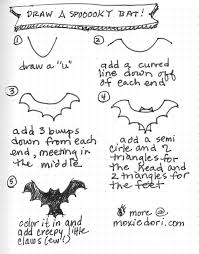 DRAW A SPOOOOKY BAT!
1
draw a "u"
2
add a curved
line down off
of each end
3
add 3 bumps
down from each
end, meeting in
the middle
4
add a semi
circle and 2
triangles for
the head and
2 triangles for
the feet
5
color it in and
add creepy little
claws (ew!)
more @
moxiedori.com